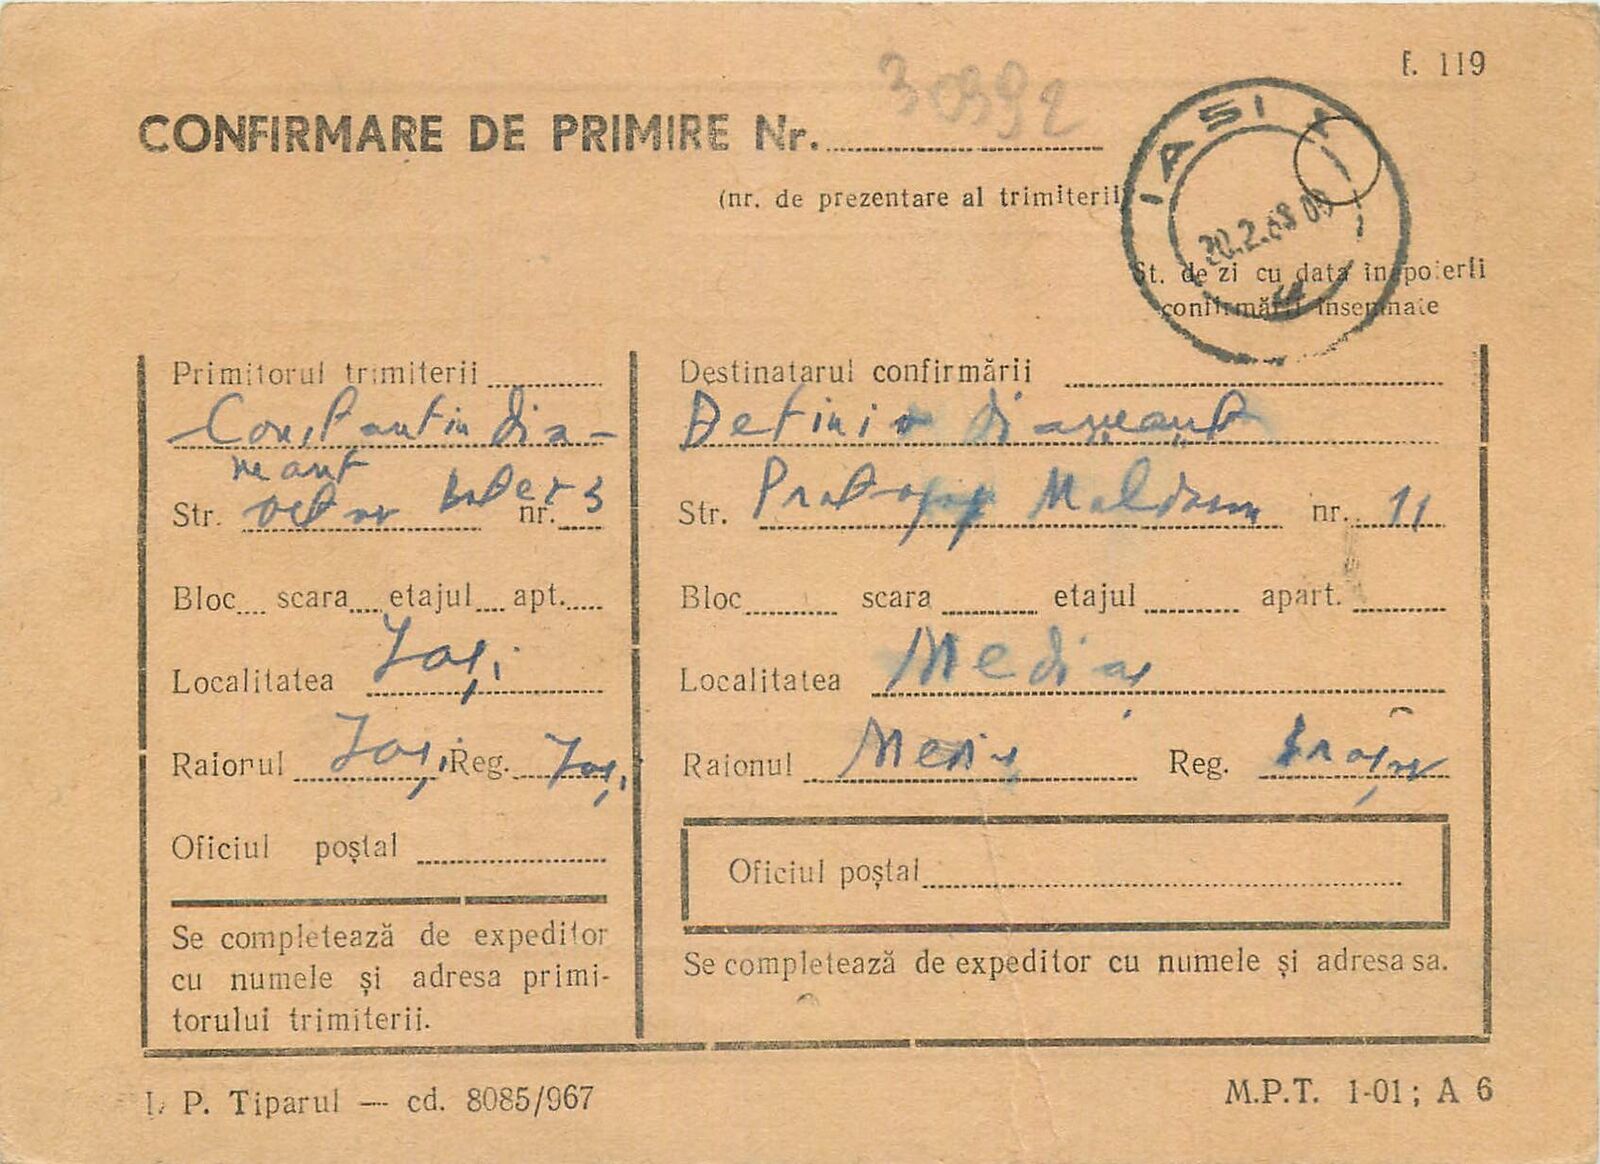 F. 119
30992
CONFIRMARE DE PRIMIRE Nr.
(nr. de prezentare al trimiterii)
IASI
20.2.68 09
St. de zi cu data înapoierii
confirmării însemnate
Primitorul trimiterii
Constantin Dia-
mant
Str. nr. 3
Bloc scara etajul apt.
Localitatea Iași
Raionul Iași Reg. Iași
Oficiul poștal
Se completează de expeditor
cu numele și adresa primi-
torului trimiterii.
Destinatarul confirmării
Diamant
Str. Protopop Moldovan nr. 11
Bloc scara etajul apart.
Localitatea Mediaș
Raionul Mediaș Reg. Brașov
Oficiul poștal
Se completează de expeditor cu numele și adresa sa.
I. P. Tiparul — cd. 8085/967
M.P.T. 1-01; A 6